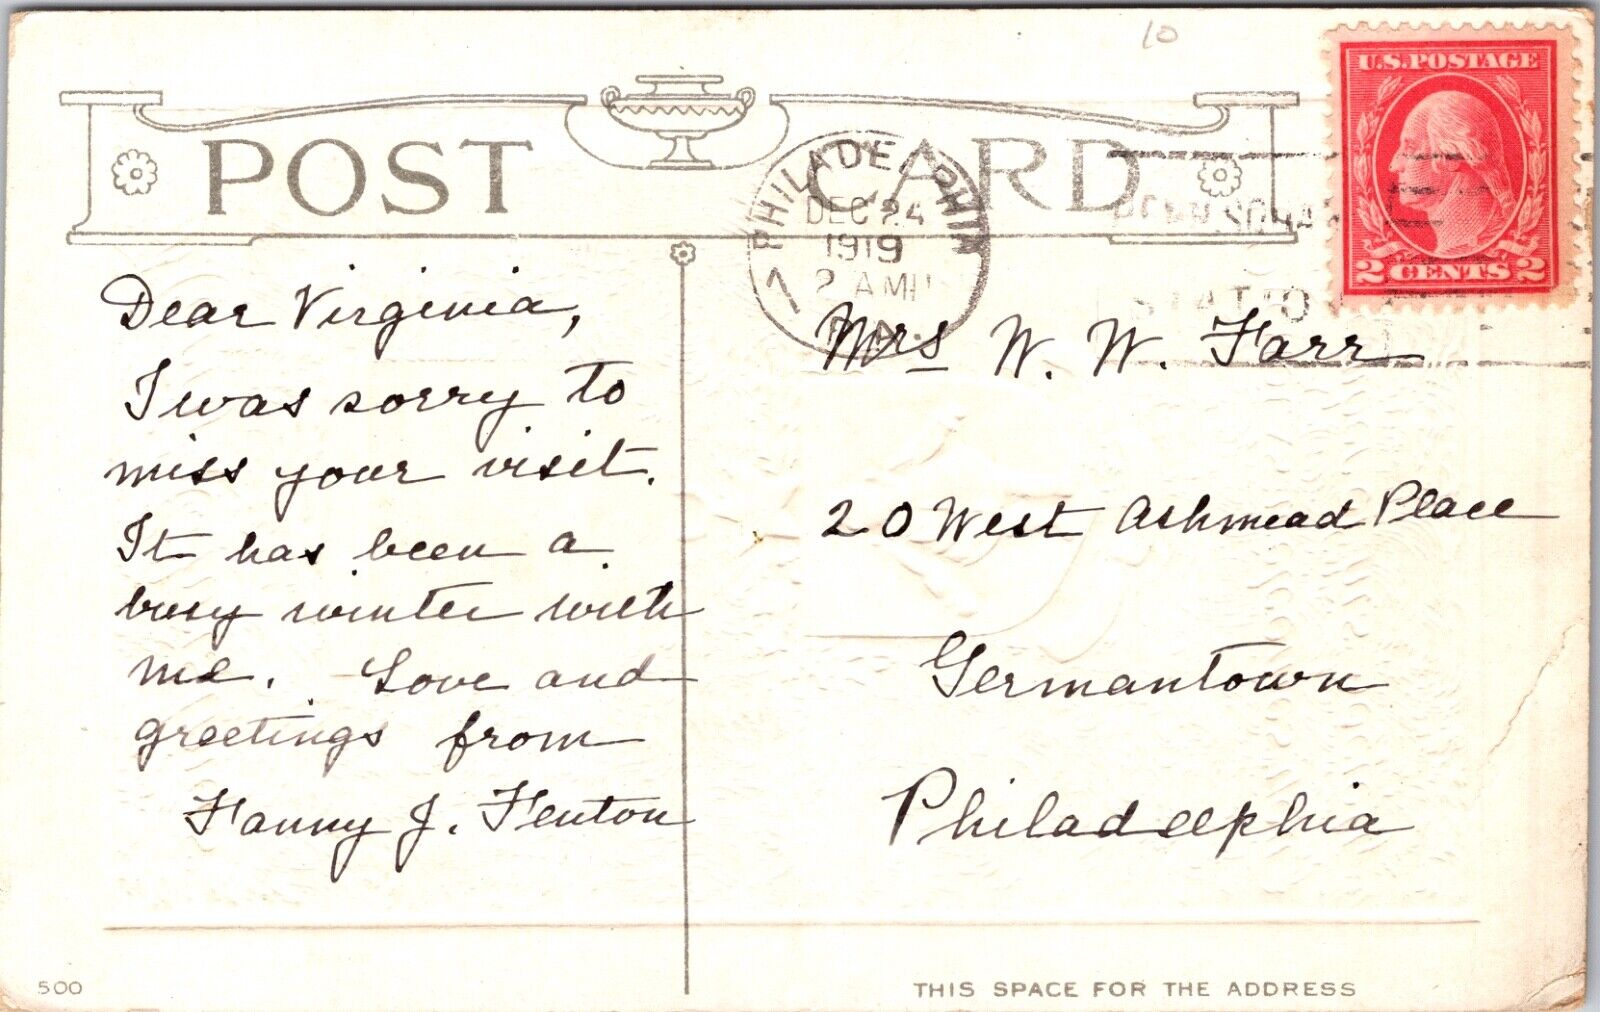 10
U.S. POSTAGE
2 CENTS 2
POST CARD
PHILADELPHIA
DEC 24
1919
2 AM
PA.
PENN SQUARE
STATION
Dear Virginia,
I was sorry to
miss your visit.
It has been a
busy winter with
me. Love and
greetings from
Fanny J. Fenton
Mrs W. W. Farr
20 West Ashmead Place
Germantown
Philadelphia
500
THIS SPACE FOR THE ADDRESS